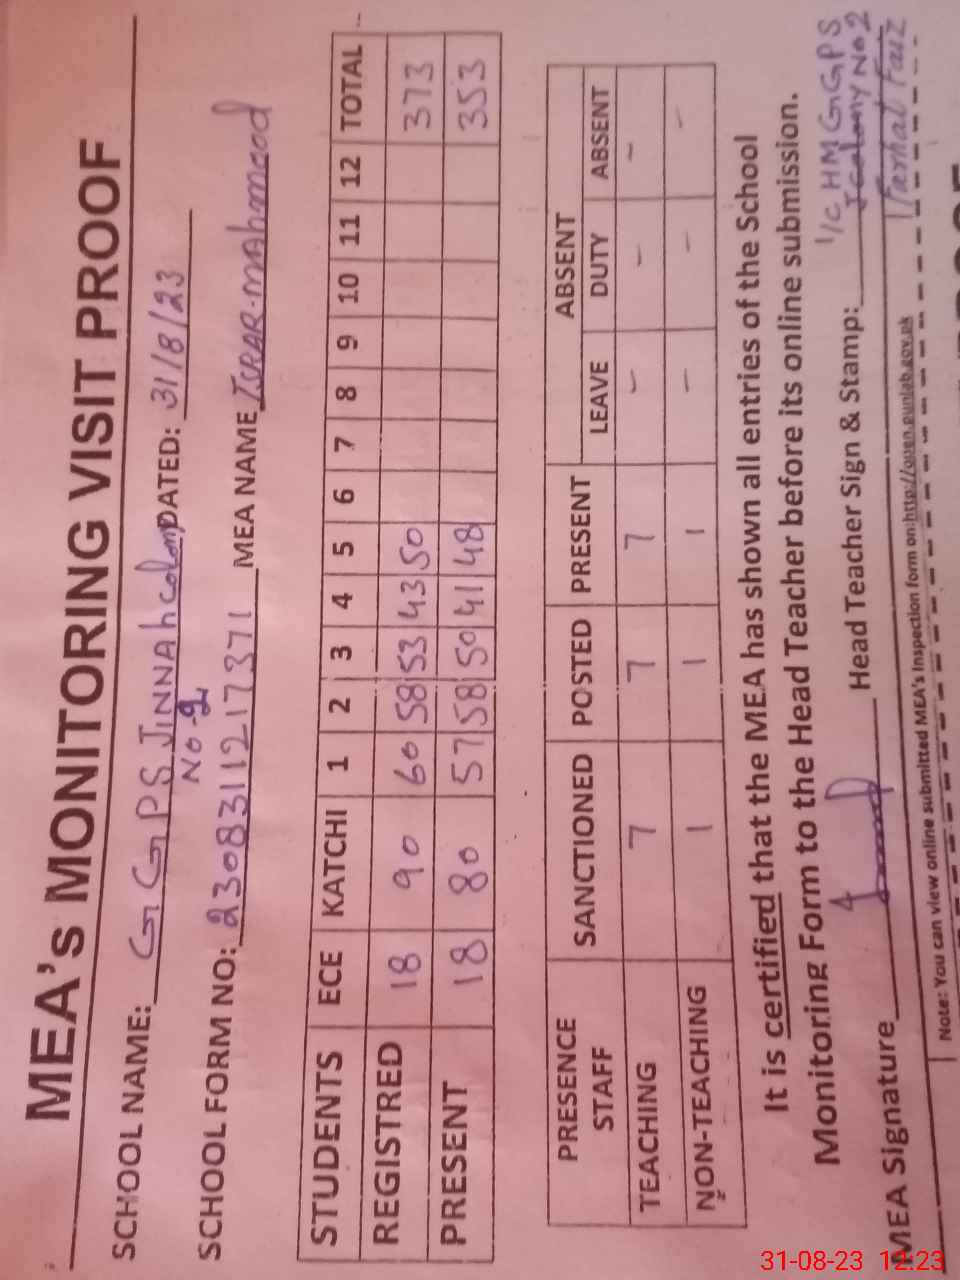 MEA's MONITORING VISIT PROOF
SCHOOL NAME: GGPS JINNAH colony No-2 DATED: 31/8/23
SCHOOL FORM NO: 2308311217371 MEA NAME ISRAR-MAhmood
STUDENTS ECE KATCHI 1 2 3 4 5 6 7 8 9 10 11 12 TOTAL
REGISTRED 18 90 60 58 53 43 50 373
PRESENT 18 80 57 58 50 41 48 353
PRESENCE STAFF SANCTIONED POSTED PRESENT ABSENT
LEAVE DUTY ABSENT
TEACHING 7 7 7 - - -
NON-TEACHING 1 1 1 - - -
It is certified that the MEA has shown all entries of the School
Monitoring Form to the Head Teacher before its online submission.
I/C HM GGPS
J colony No 2
MEA Signature Head Teacher Sign & Stamp:
Farhat Faiz
Note: You can view online submitted MEA's Inspection form on:http://open.punjab.gov.pk
31-08-23 12:23